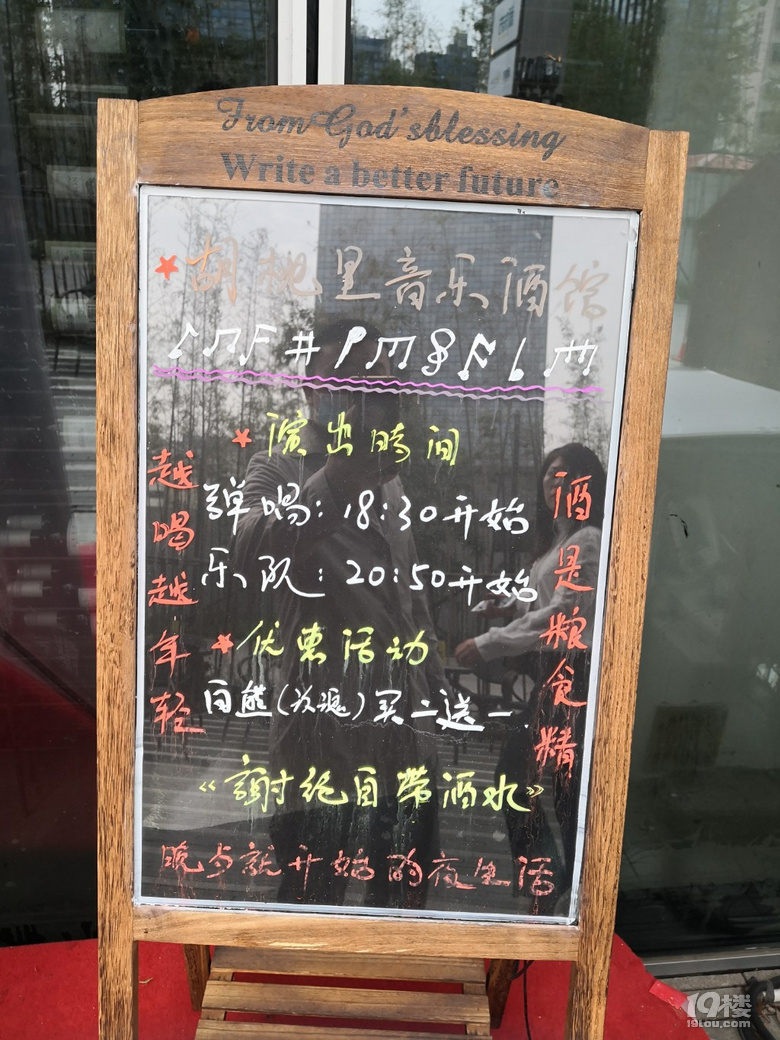 From God'sblessing
Write a better future
胡桃里音乐酒馆
演出時间
弹唱：18:30开始
乐队：20:50开始
越喝越年轻
酒是粮食精
优惠活动
白熊（玫瑰）买二送一
《謝绝自带酒水》
晚8就开始的夜生活
19楼
19lou.com